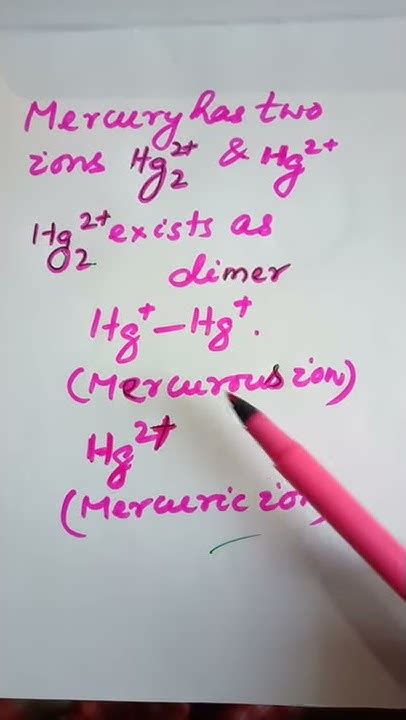 Mercury has two
ions Hg₂²⁺ & Hg²⁺
Hg₂²⁺ exists as
dimer
Hg⁺–Hg⁺.
(Mercurous ion)
Hg²⁺
(Mercuric ion)